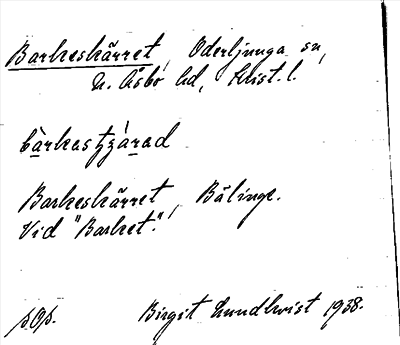 Barkeskärret, Oderljunga sn,
N. Åsbo hd, Krist. l.
bàrkastʒárad
Barkeskärret, Bälinge.
Vid "Barket".
Birgit Lundkvist 1938.